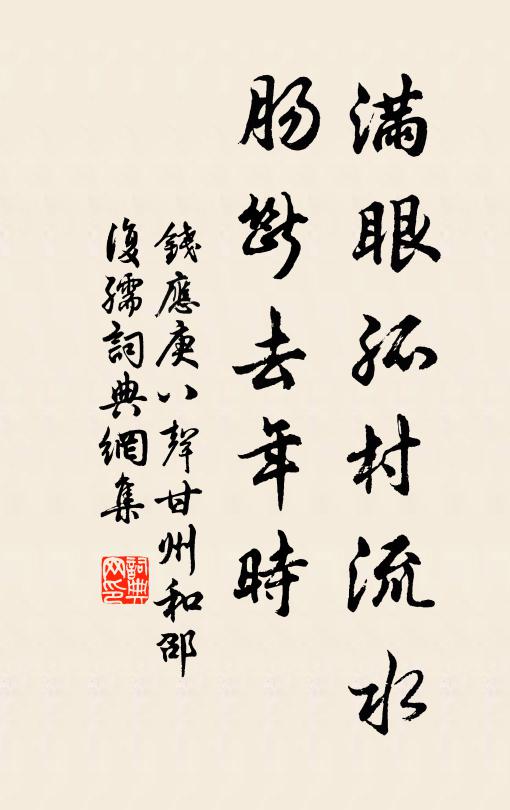 滿眼孤村流水
腸斷去年時
錢應庚八聲甘州和邵
復孺詞典網集
詞典
网印